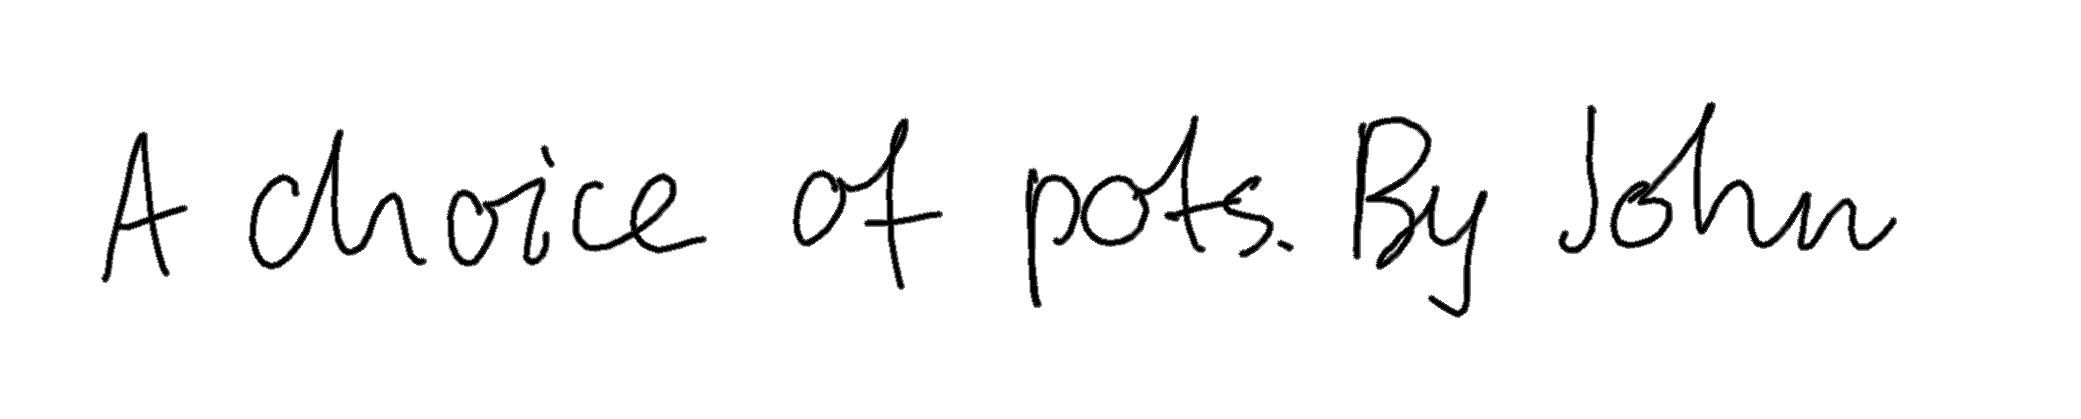 A choice of pots. By John